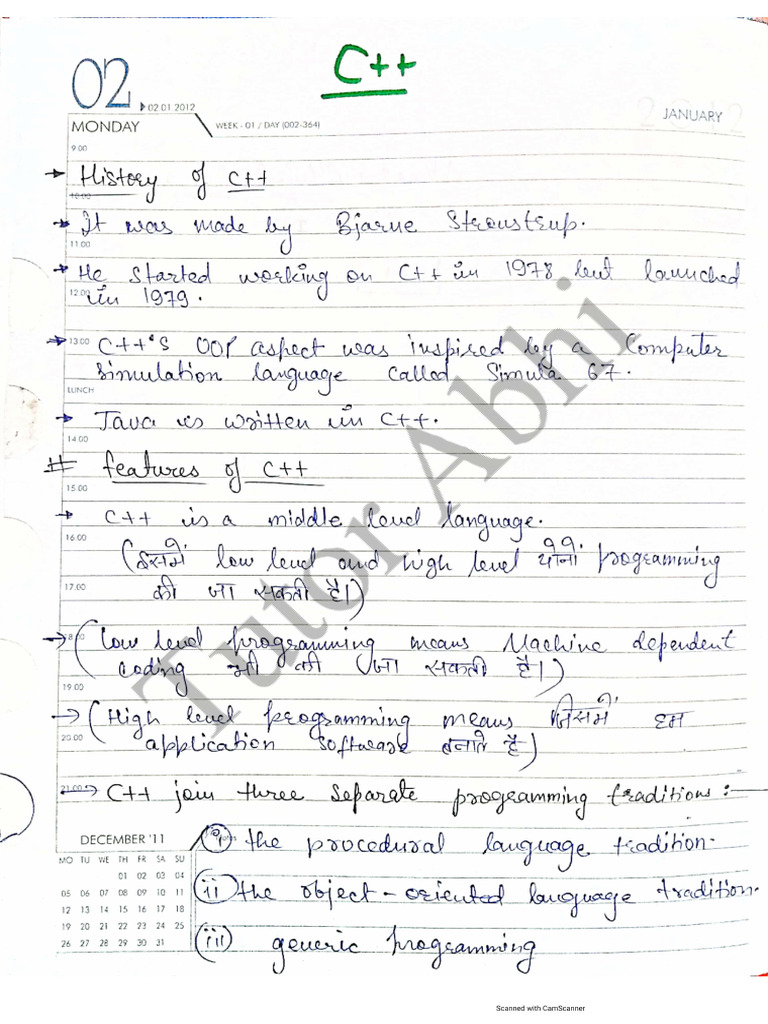 C++
02
02.01.2012
MONDAY
WEEK - 01 / DAY (002-364)
JANUARY
9.00
→ History of C++
10.00
→ It was made by Bjarne Stroustrup.
11.00
→ He started working on C++ in 1978 but launched
12.00 in 1979.
→ 13.00 C++'s OOP aspect was inspired by a Computer
simulation language called Simula 67.
LUNCH
→ Java is written in C++.
14.00
# features of C++
15.00
→ C++ is a middle level language.
16.00
(इसमें low level and high level दोनों programming
17.00 की जा सकती है।)
→ 18.00 (low level programming means Machine dependent
coding भी की जा सकती है।)
19.00
→ (High level programming means जिसमें हम
20.00 application software बनाते है)
21.00 → C++ join three separate programming traditions :-
DECEMBER '11
MO TU WE TH FR SA SU
01 02 03 04
05 06 07 08 09 10 11
12 13 14 15 16 17 18
19 20 21 22 23 24 25
26 27 28 29 30 31
(i) the procedural language tradition.
(ii) the object - oriented language tradition.
(iii) generic programming
Tutor Abhi
Scanned with CamScanner